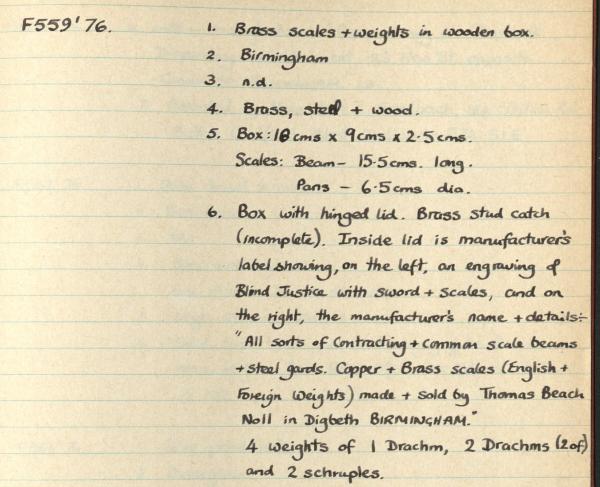 F559'76. 1. Brass scales + weights in wooden box.
2. Birmingham
3. n.d.
4. Brass, steel + wood.
5. Box: 18cms x 9cms x 2.5cms.
Scales: Beam - 15.5cms. long.
Pans - 6.5cms dia.
6. Box with hinged lid. Brass stud catch
(incomplete). Inside lid is manufacturer's
label showing, on the left, an engraving of
Blind Justice with sword + scales, and on
the right, the manufacturer's name + details:-
"All sorts of Contracting + common scale beams
+ steel gards. Copper + Brass scales (English +
Foreign Weights) made + sold by Thomas Beach
No11 in Digbeth BIRMINGHAM."
4 weights of 1 Drachm, 2 Drachms (2of)
and 2 schruples.